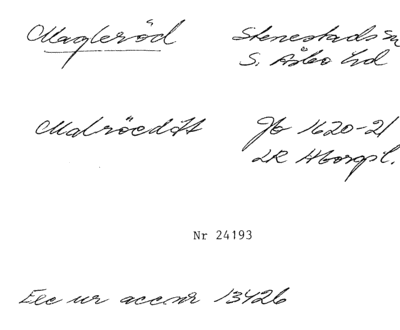 Magleröd Stenestads sn
S. Åsbo hd
Malröedtt Jb 1620-21
LR Hborgsl.
Nr 24193
Exc ur acc.nr 13426